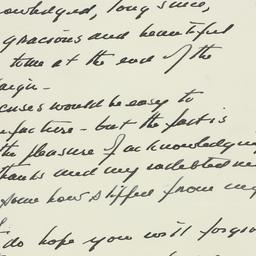 owledged, long since,
gracious and beautiful
tome at the end of the
aign -
cuses would be easy to
facture - but the fact is
the pleasure of acknowledging
thanks and my indebtedne
some how slipped from my
do hope you will forgive